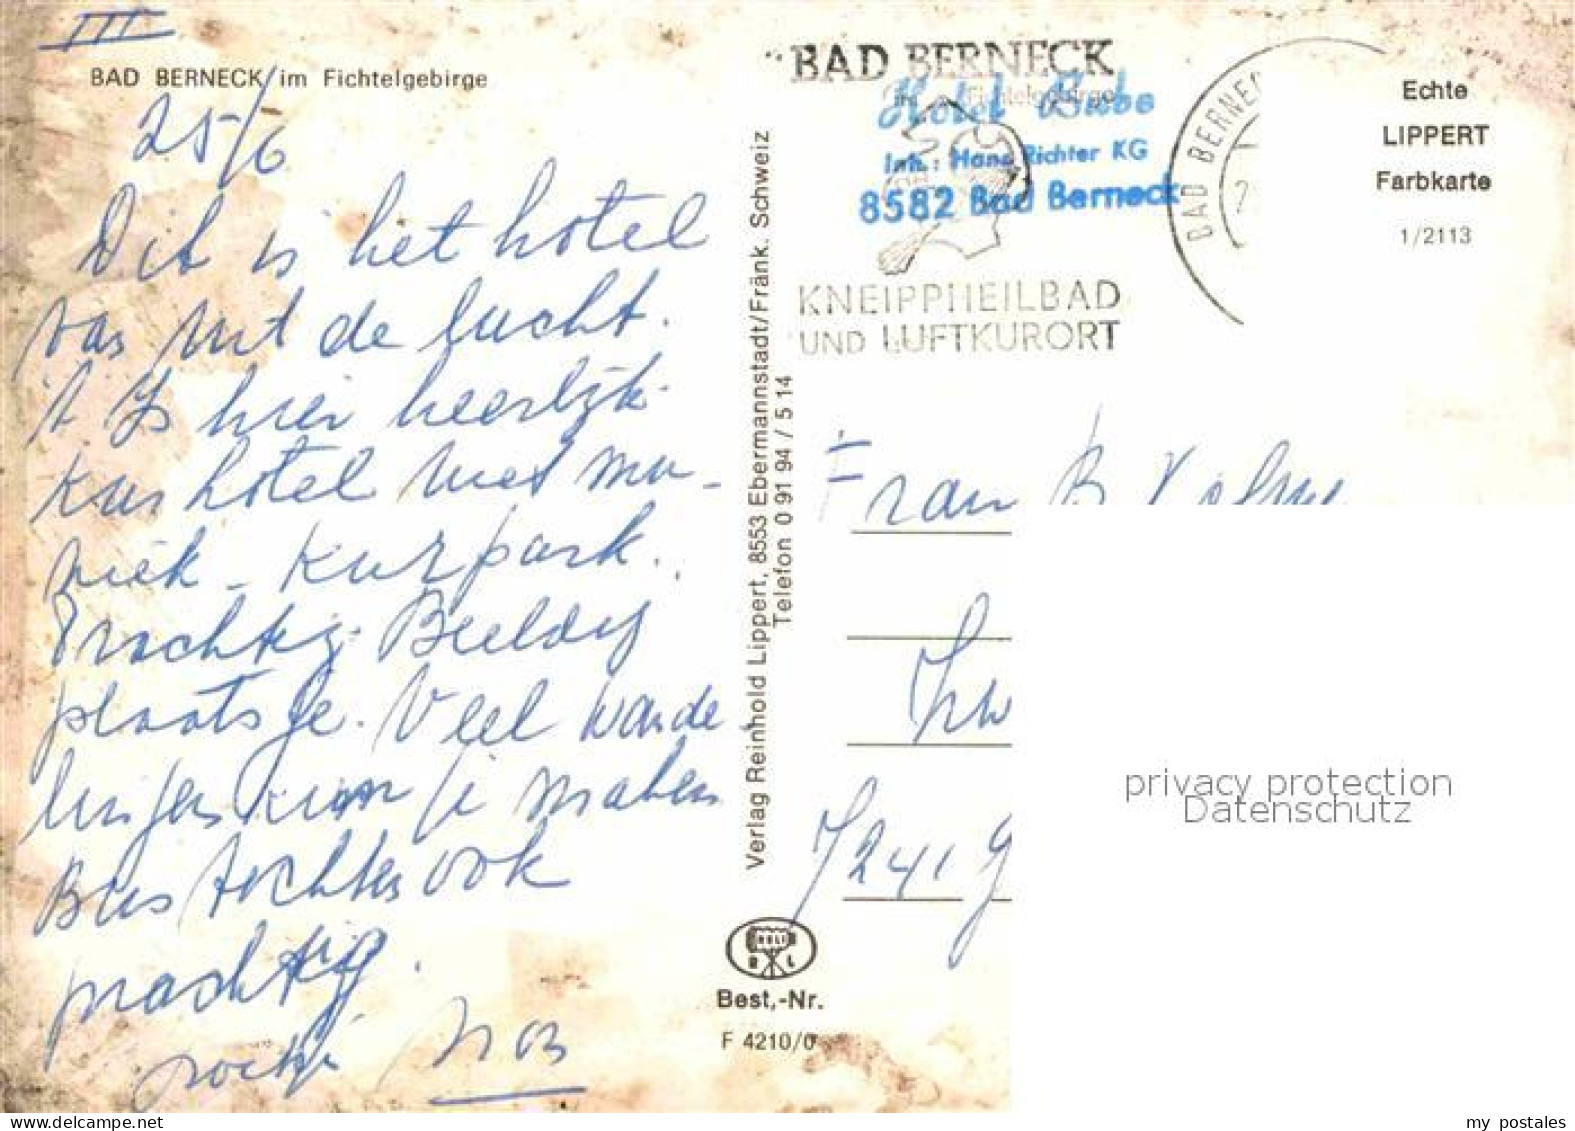 III
BAD BERNECK im Fichtelgebirge
25/6
Dit is het hotel
van uit de lucht.
't Is hier heerlijk.
Kurhotel met mu-
ziek - Kurpark.
Prachtig. Beeldig
plaatsje. Veel wande
lingen kan je maken
Bus tochten ook
prachtig.
Verlag Reinhold Lippert, 8553 Ebermannstadt/Fränk. Schweiz
Telefon 0 91 94 / 5 14
Best,-Nr.
F 4210/0
BAD BERNECK
im Fichtelgebirge
Hotel Bube
Inh.: Hans Richter KG
8582 Bad Berneck
KNEIPPHEILBAD
UND LUFTKURORT
BAD BERNEC
Echte
LIPPERT
Farbkarte
1/2113
7241 G
privacy protection
Datenschutz
my postales